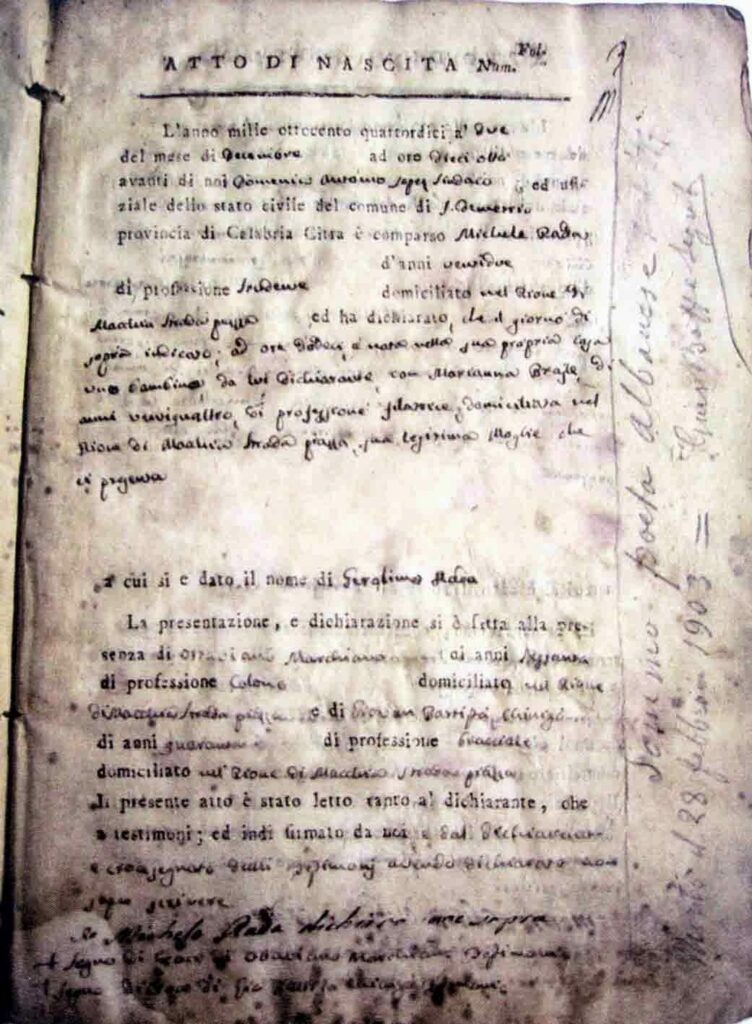 ATTO DI NASCITA Num. Fol.
L'anno mille ottocento quattordici a' due
del mese di Decembre ad ore dieci otto
avanti di noi Domenico Antonio Lopez Sindaco, ed uffi
ziale dello stato civile del comune di S. Demetrio
provincia di Calabria Citra è comparso Michele Rada
d'anni ventidue
di professione domiciliato nel Rione di
Macchia Strada piazza ed ha dichiarato, che il giorno di
sopra indicato, ad ore dodeci, è nato nella sua propria casa
uno bambino, da lui dichiarante, con Marianna Braile, di
anni ventiquattro, di professione filatrice, domiciliata nel
Rione di Macchia Strada piazza, sua legitima Moglie che
ci presenta
a cui si e dato il nome di Gerolimo Rada
La presentazione, e dichiarazione si è fatta alla pre-
senza di Ottaviano Marchiano di anni sessanta
di professione Colono domiciliato nel Rione
di Macchia Strada piazza e di Giovan Battista
di anni quaranta di professione bracciale
domiciliato nel Rione di Macchia Strada piazza
Il presente atto è stato letto tanto al dichiarante, che
a testimoni; ed indi firmato da noi e dal dichiarante
e crocesegnato dalli testimonj avendo dichiarato non
saper scrivere
Io Michele Rada dichiaro come sopra
+ Segno di Croce di Ottaviano Marchiano Testimonio
+ Segno di Croce di Gio Battista
sommo poeta albanese
Morto il 28 febbraio 1903 =